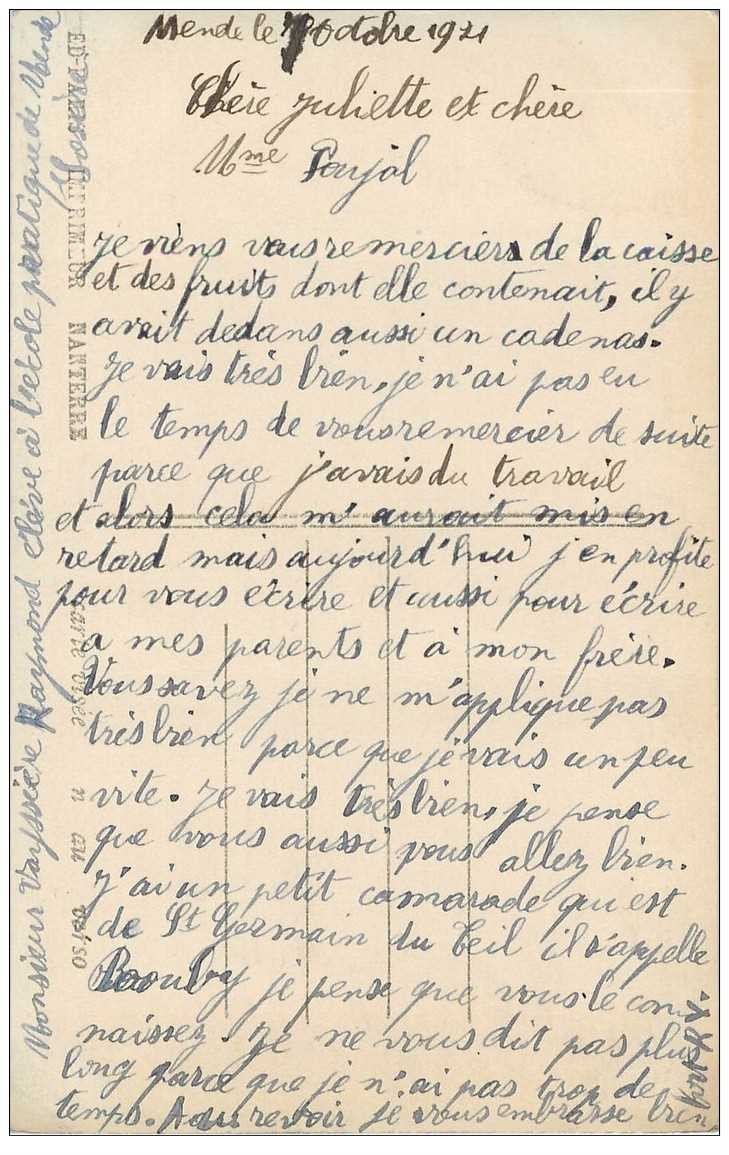 Mende le 7 Octobre 1921
Chère Juliette et chère
Mme Poujol
Je viens vous remercier de la caisse
et des fruits dont elle contenait, il y
avait dedans aussi un cadenas.
Je vais très bien, je n'ai pas eu
le temps de vous remercier de suite
parce que j'avais du travail
et alors cela m'aurait mis en
retard mais aujourd'hui j'en profite
pour vous écrire et aussi pour écrire
a mes parents et à mon frère.
Vous savez je ne m'applique pas
très bien parce que je vais un peu
vite. Je vais très bien, je pense
que vous aussi vous allez bien.
J'ai un petit camarade qui est
de St Germain du Teil il s'appelle
je pense que vous le con
naissez. Je ne vous dit pas plus
long parce que je n'ai pas trop de
temps. Au revoir je vous embrasse bien
fort R V.
Monsieur Vayssière Raymond élève à l'école pratique de Mende
Lozère
ED-PARIS IMPRIMEUR NANTERRE